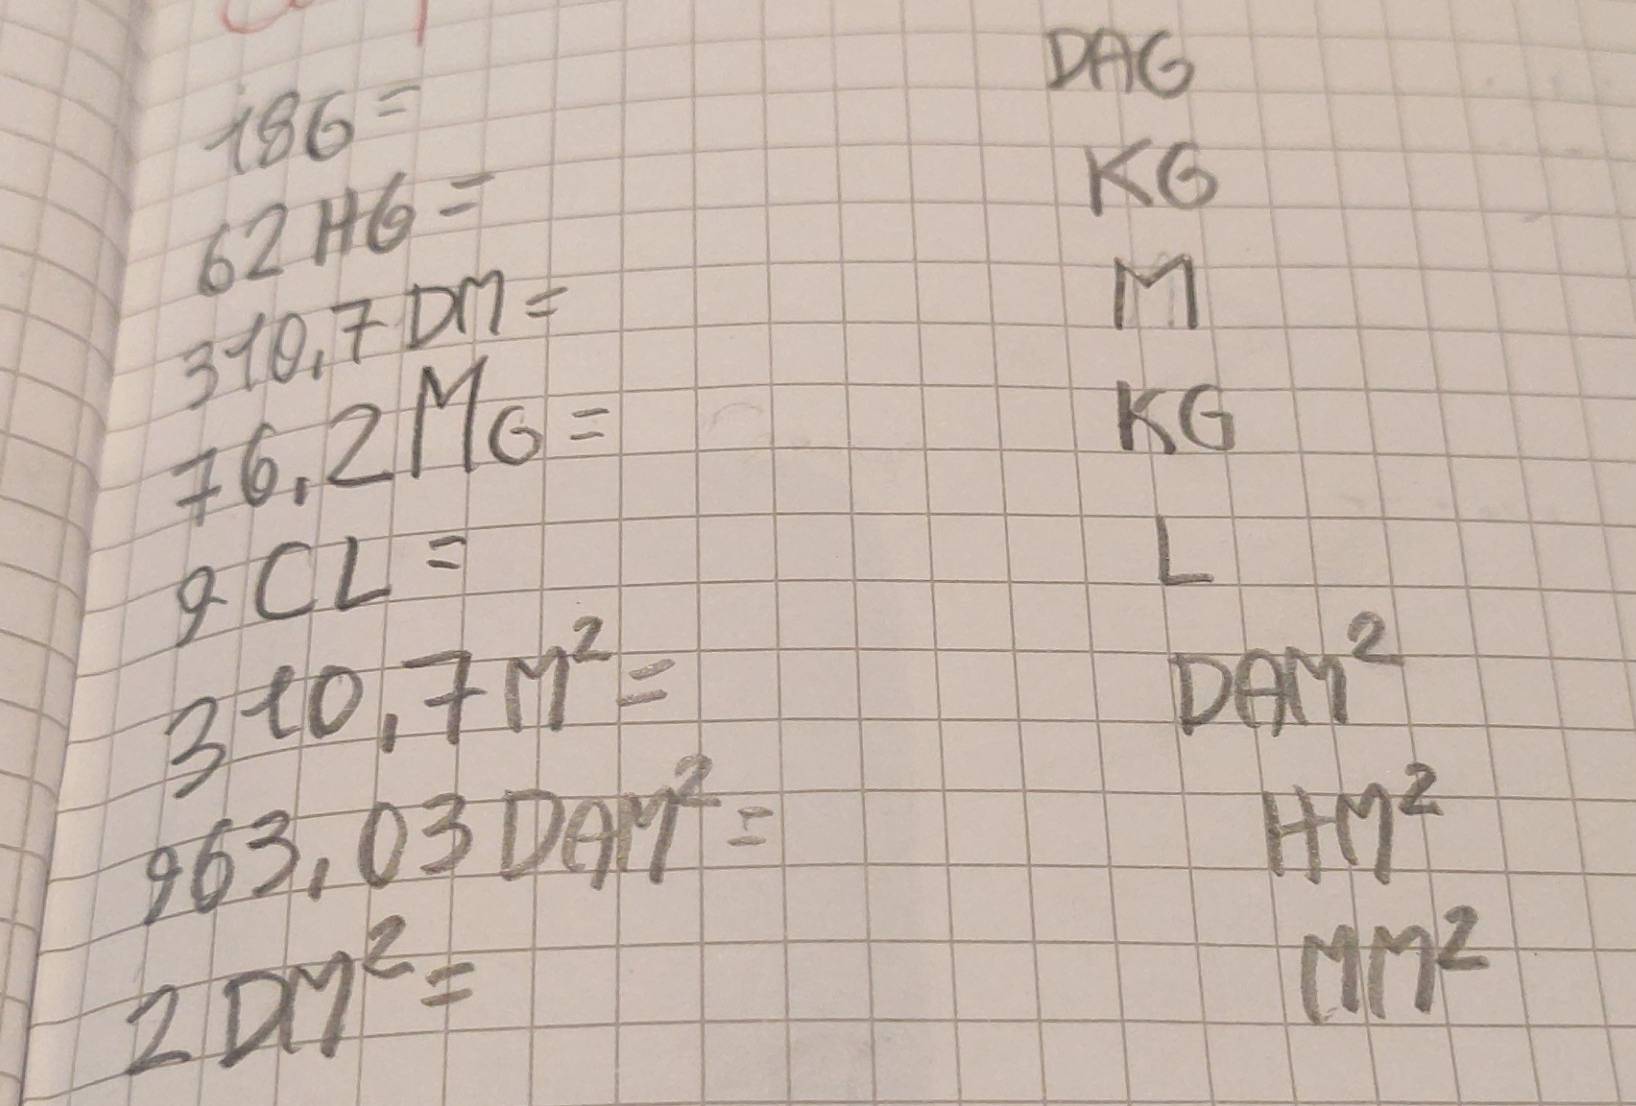 18G= DAG
62 HG= KG
310,7 DM= M
76,2 MG= KG
9 CL= L
310,7 M²= DAM²
963,03 DAM²= HM²
2 DM²= MM²